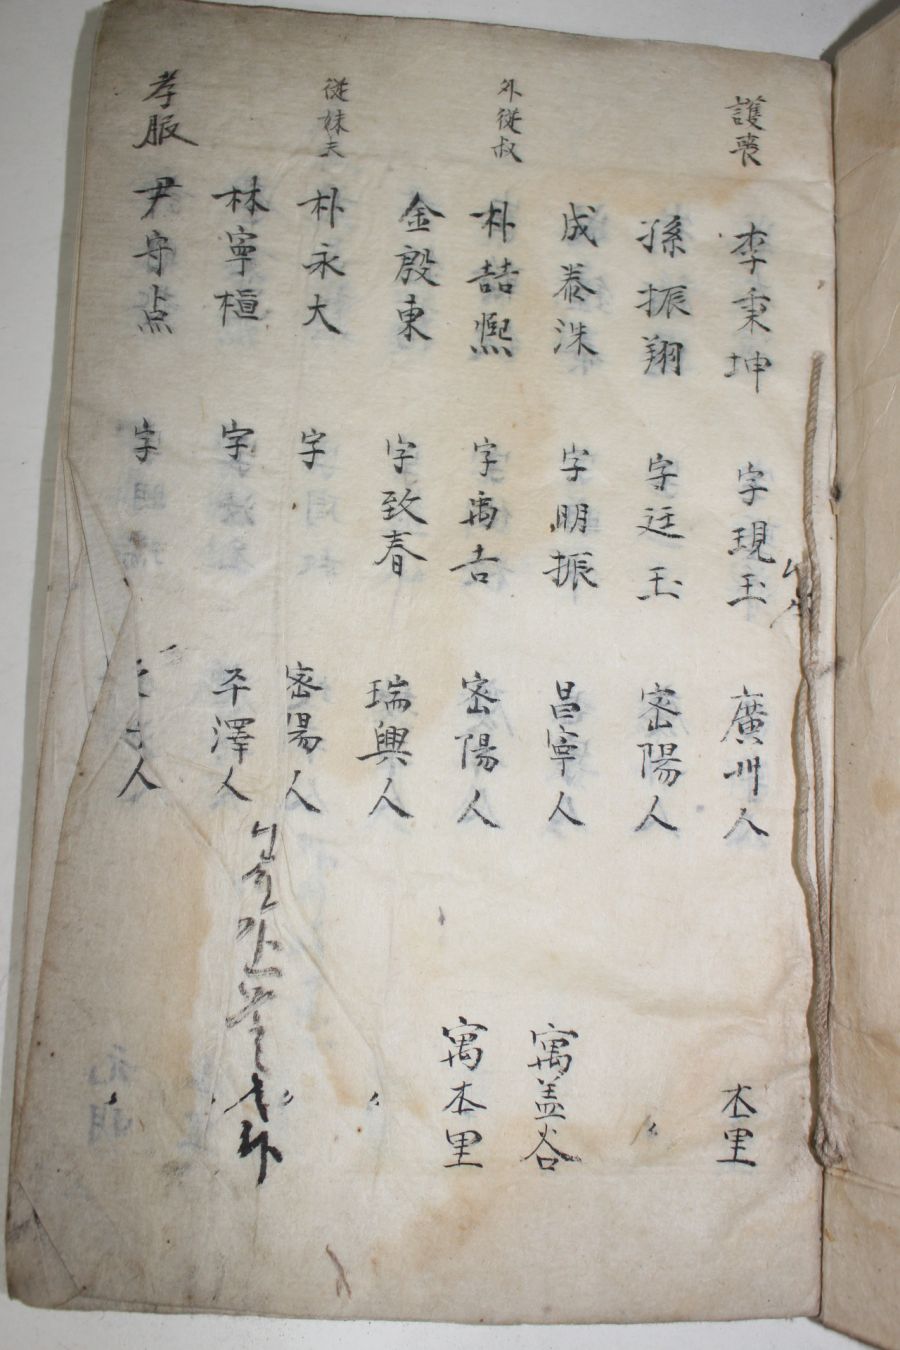 護喪 李秉坤 字現玉 廣州人 本里
孫振翔 字廷玉 密陽人 〃
成泰洙 字明振 昌寧人 寓盖谷
外從叔 朴喆熙 字禹吉 密陽人 寓本里
金殷東 字致春 瑞興人 〃
從妹夫 朴永大 字 密陽人 〃
林寧楦 字 平澤人 〃
孝服 尹守点 字 人 〃